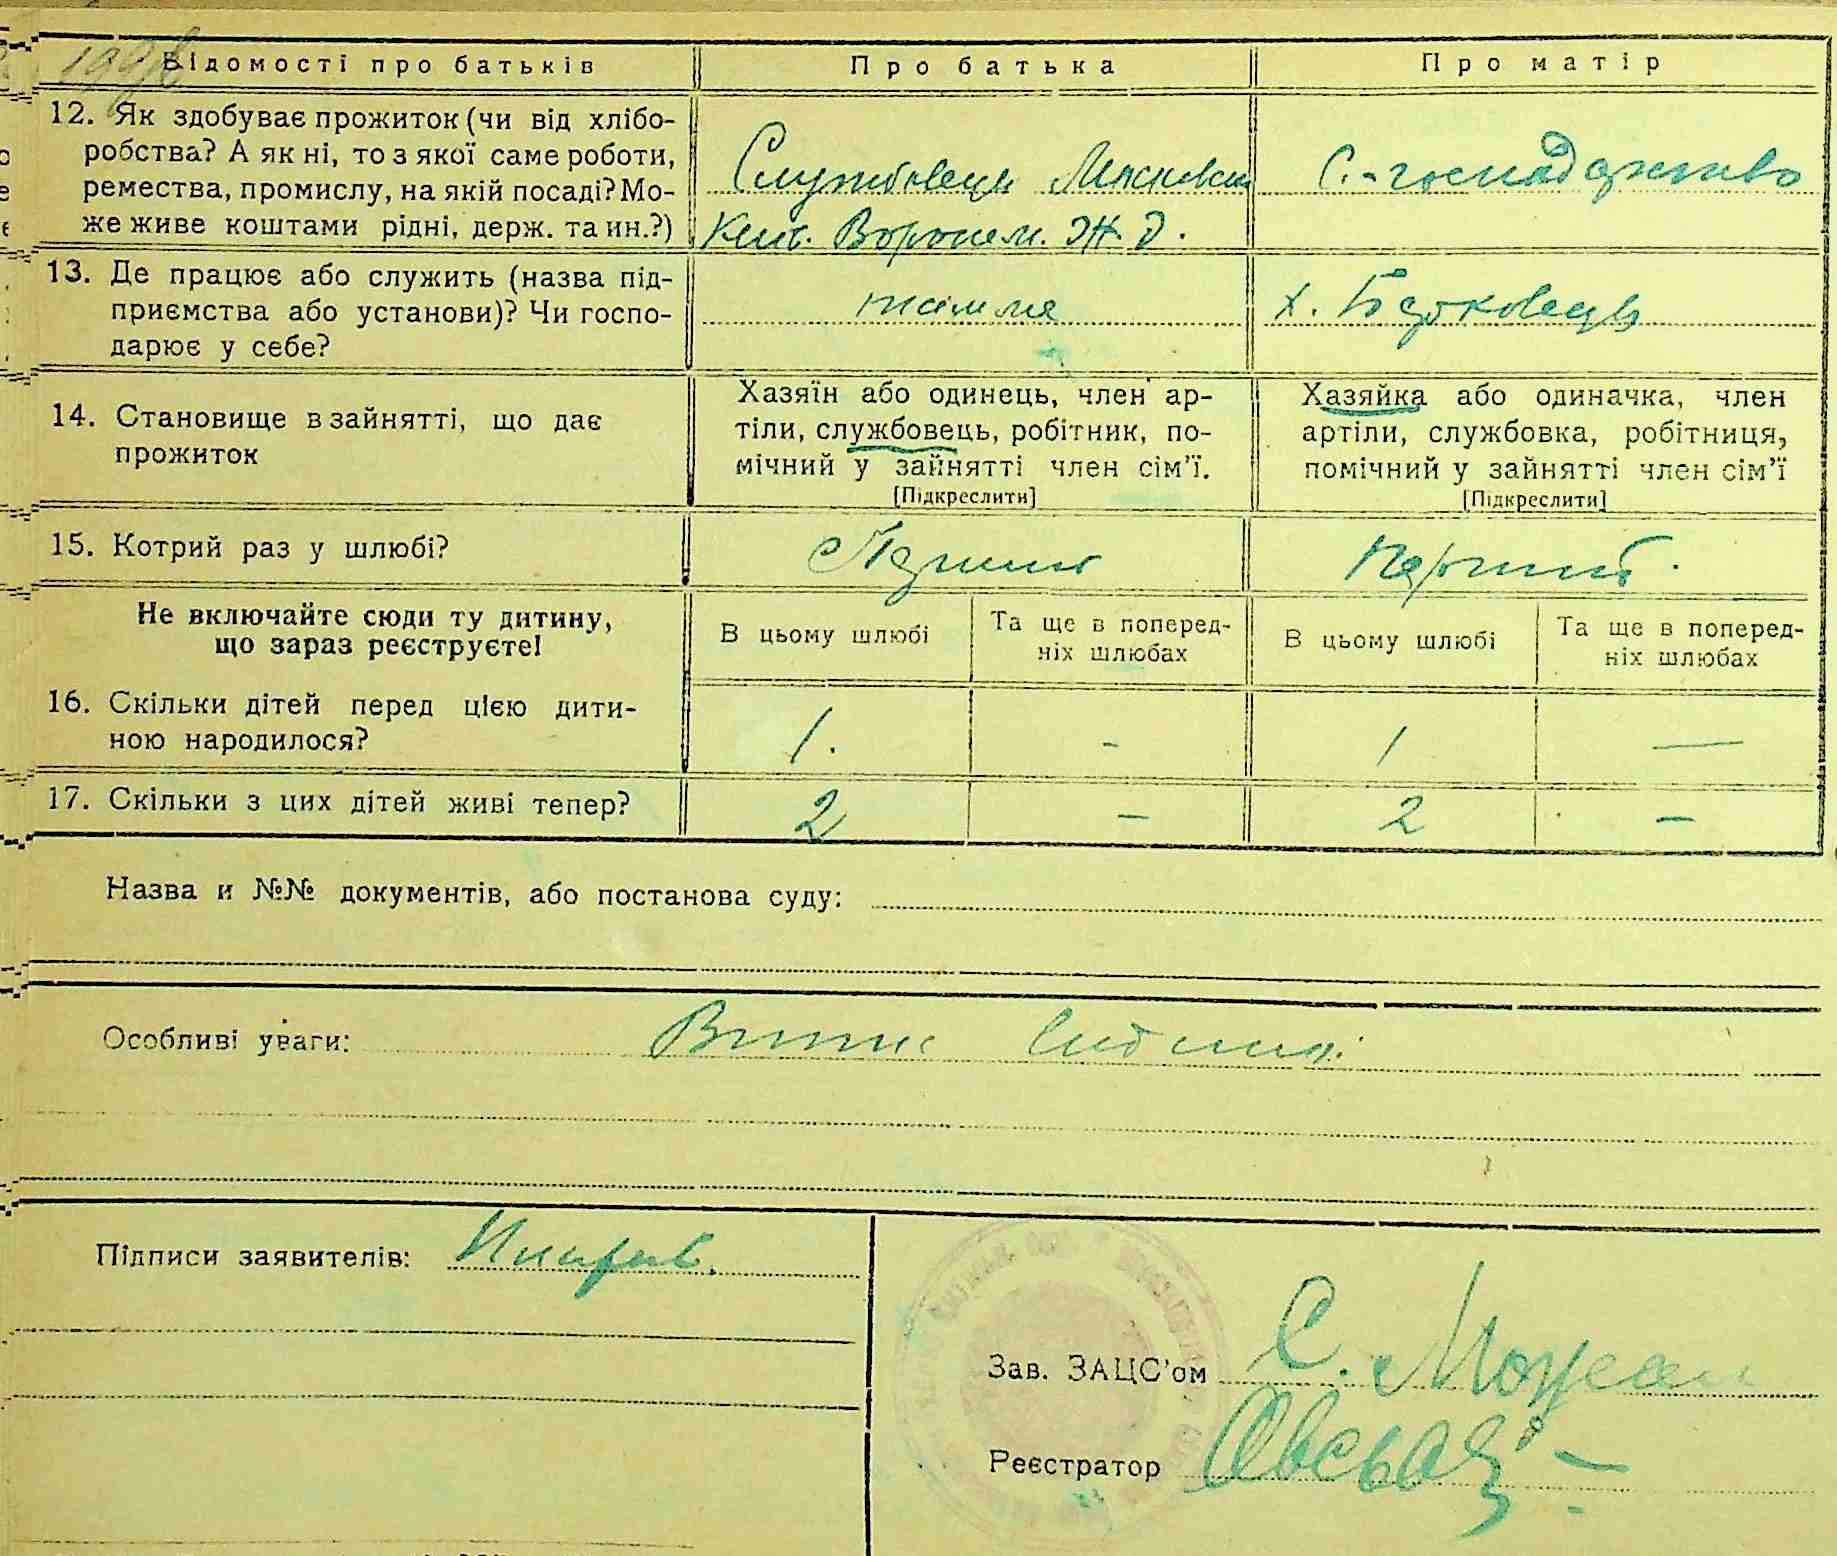 Відомості про батьків
Про батька
Про матір
12. Як здобуває прожиток (чи від хлібо-
робства? А як ні, то з якої саме роботи,
ремества, промислу, на якій посаді? Мо-
же живе коштами рідні, держ. та ин.?)
Службовець Московськ
Київ. Воронеж. Ж. Д.
С.-господарство
13. Де працює або служить (назва під-
приємства або установи)? Чи госпо-
дарює у себе?
х.
14. Становище в зайнятті, що дає
прожиток
Хазяїн або одинець, член ар-
тіли, службовець, робітник, по-
мічний у зайнятті член сім'ї.
[Підкреслити]
Хазяйка або одиначка, член
артіли, службовка, робітниця,
помічний у зайнятті член сім'ї
[Підкреслити]
15. Котрий раз у шлюбі?
Перший
Перший
Не включайте сюди ту дитину,
що зараз реєструєте!
В цьому шлюбі
Та ще в поперед-
ніх шлюбах
В цьому шлюбі
Та ще в поперед-
ніх шлюбах
16. Скільки дітей перед цією дити-
ною народилося?
1. - 1 —
17. Скільки з цих дітей живі тепер?
2 - 2 -
Назва и №№ документів, або постанова суду:
Особливі уваги:
Підписи заявителів:
Зав. ЗАЦС'ом С.
Реєстратор